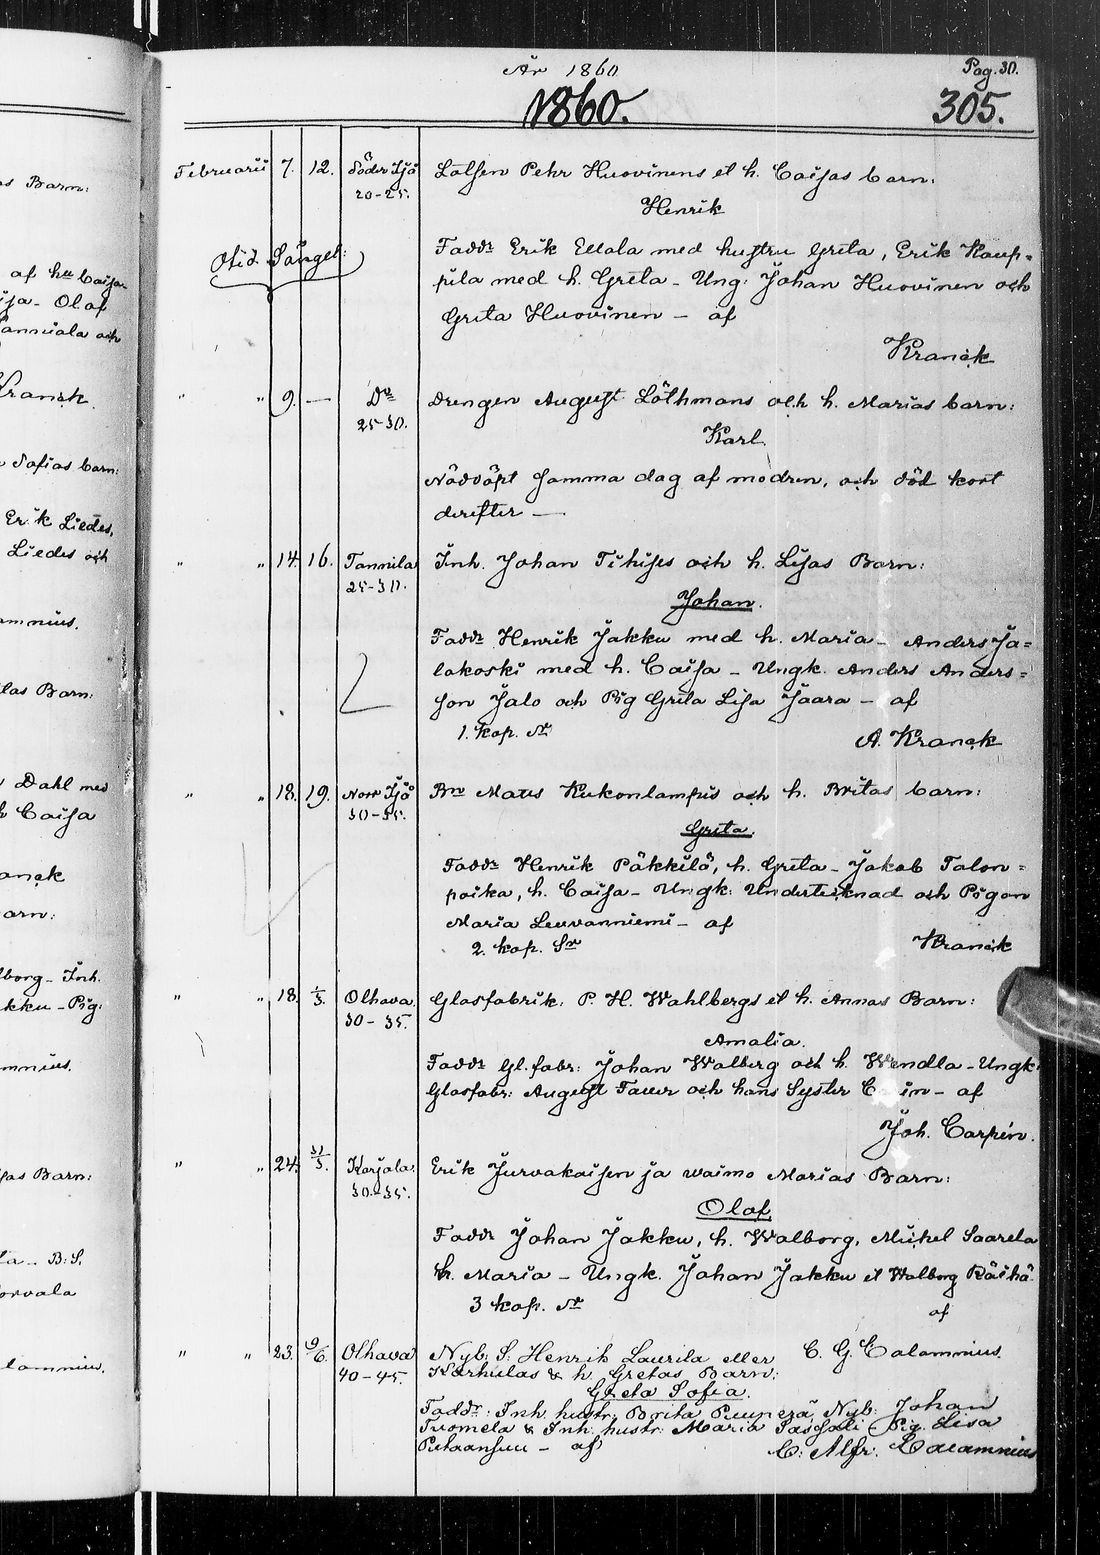 År 1860
Pag. 30.
1860.
305.
Februarii 7. 12. Söder Ijo Lotsen Pehr Huovinens et h. Caisas barn:
20-25.
Henrik
Otid. Sängel:
Faddr Erik Ellala med hustru Greta, Erik Kaup=
pila med h. Greta - Ung: Johan Huovinen och
Greta Huovinen - af
Kranck
" " 9. — Do Drengen August Löthmans och h. Marias barn:
25-30.
Karl.
Nöddöpt samma dag af modren, och död kort
derefter —
" " 14. 16. Tannila Inh. Johan Tihises och h. Lisas Barn:
25-30.
Johan.
Faddr Henrik Jakku med h. Maria - Anders Ja=
lakoski med h. Caisa - Ungk. Anders Anders=
son Jalo och Pig Greta Lisa Jaara - af
1. kop. Sr
A. Kranck
" " 18. 19. Norr Ijo Bn Mats Kukonlampis och h. Britas barn:
30-35.
Greta.
Faddr Henrik Päkkilä, h. Greta - Jakob Talon=
poika, h. Caisa - Ungk: Undertecknad och Pigan
Maria Leuvanniemi - af
2. kop. Sr
Kranck
" " 18. 1/3. Olhava Glasfabrik: P. H. Wahlbergs et h. Annas Barn:
30-35.
Amalia.
Faddr Gl. fabr: Johan Walberg och h. Wendla - Ungk:
Glasfabr: August Fauer och hans Syster Carin - af
Joh. Carpén.
" " 24. 31/3. Karjala Erik Jurvakaisen ja waimo Marias Barn:
30-35.
Olof
Faddr Johan Jakku, h. Walborg, Michel Saarela
h. Maria - Ungk. Johan Jakku et Walborg Räihä
3 kop. Sr
af
" " 23. 9/6. Olhava Nyb: S. Henrik Laurila eller C. G. Calamnius.
40-45. Karhulas & h. Gretas Barn:
Greta Sofia.
Faddr: Inh. hustr: Brita Puuperä, Nyb: Johan
Tuomela & Inh. hustr: Maria Paspali - Pig. Lisa
Putaansuu - af
C: Alfr: Calamnius
as Barn:
af hu Caisa
Olof
och
Kranck.
Sofias barn:
Erik Liedes,
Liedes och
Barn:
Dahl med
Caisa
Barn:
Inh.
Pig:
Barn:
B: S.